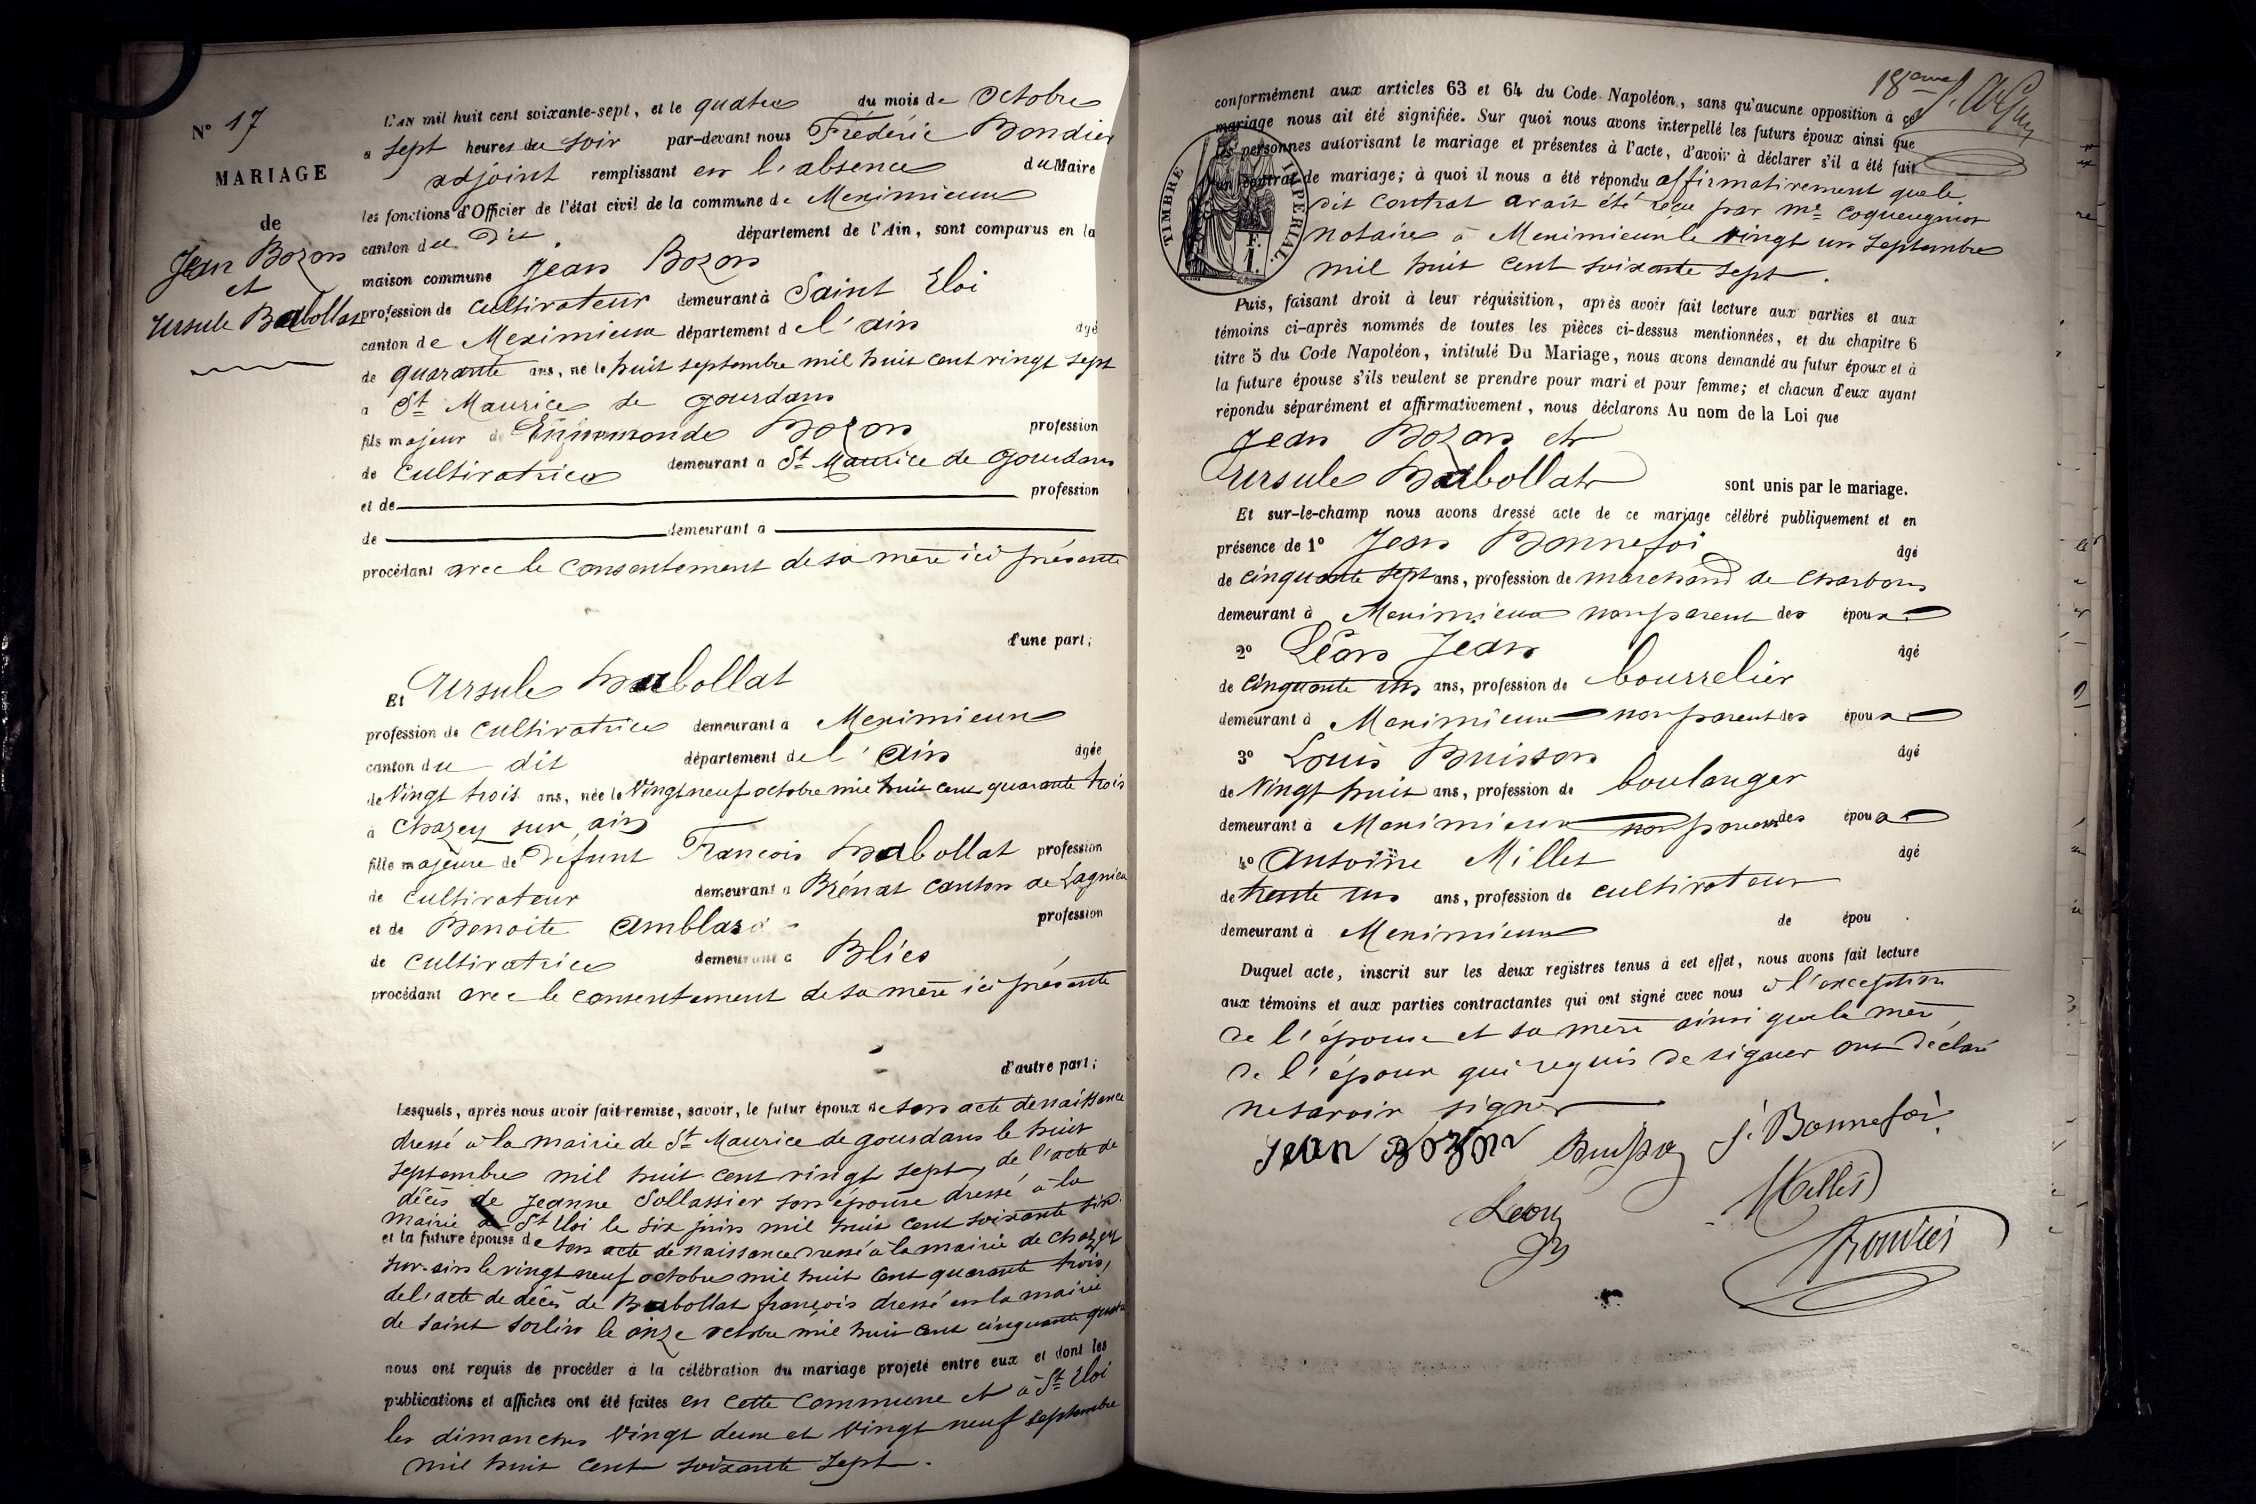 N° 17
MARIAGE
de
Jean Bozon
et
Ursule Babollat
L'AN mil huit cent soixante-sept, et le quatre du mois de Octobre
a sept heures du soir par-devant nous Frédéric Bondier
adjoint remplissant en l'absence du Maire
les fonctions d'Officier de l'état civil de la commune de Meximieux
canton du Dit département de l'Ain, sont comparus en la
maison commune Jean Bozon
profession de cultivateur demeurant à Saint Eloi
canton de Meximieux département de l'ain âgé
de quarante ans, né le huit septembre mil huit cent vingt sept
a St Maurice de gourdans
fils majeur de Ennemonde Bozon profession
de cultivatrice demeurant a St Maurice de gourdans
et de profession
de demeurant a
procédant avec le consentement de sa mère ici présente
d'une part;
Et Ursule Babollat
profession de cultivatrice demeurant a Meximieux
canton du dit département de l'ain âgée
de vingt trois ans, née le vingt neuf octobre mil huit cent quarante trois
à chazey sur ain
fille majeure de défunt François Babollat profession
de cultivateur demeurant a Brénat canton de Lagnieu
et de Benoite Amblard profession
de cultivatrice demeurant a Blies
procédant avec le consentement de sa mère ici présente
d'autre part;
Lesquels, après nous avoir fait remise, savoir, le futur époux de son acte de naissance
dressé à la mairie de St Maurice de gourdans le huit
septembre mil huit cent vingt sept, de l'acte de
décès de Jeanne Sollassier son épouse dressé à la
mairie de St Eloi le six juin mil huit cent soixante six.
et la future épouse de son acte de naissance dressé à la mairie de chazey
sur-ain le vingt neuf octobre mil huit cent quarante trois,
de l'acte de décès de Babollat françois dressé en la mairie
de saint sorlin le onze octobre mil huit cent cinquante quatre
nous ont requis de procéder à la célébration du mariage projeté entre eux et dont les
publications et affiches ont été faites en cette commune et à St Eloi
les dimanches vingt deux et vingt neuf septembre
mil huit cent soixante sept.
18eme
conformément aux articles 63 et 64 du Code Napoléon, sans qu'aucune opposition à ce
mariage nous ait été signifiée. Sur quoi nous avons interpellé les futurs époux ainsi que
les personnes autorisant le mariage et présentes à l'acte, d'avoir à déclarer s'il a été fait
un contrat de mariage; à quoi il nous a été répondu affirmativement que le
TIMBRE IMPERIAL.
F.
1.
dit contrat avait été reçu par me coqueugniot
notaire à Meximieux le vingt un septembre
mil huit cent soixante sept.
Puis, faisant droit à leur réquisition, après avoir fait lecture aux parties et aux
témoins ci-après nommés de toutes les pièces ci-dessus mentionnées, et du chapitre 6
titre 5 du Code Napoléon, intitulé Du Mariage, nous avons demandé au futur époux et à
la future épouse s'ils veulent se prendre pour mari et pour femme; et chacun d'eux ayant
répondu séparément et affirmativement, nous déclarons Au nom de la Loi que
Jean Bozon et
Ursule Babollat sont unis par le mariage.
Et sur-le-champ nous avons dressé acte de ce mariage célébré publiquement et en
présence de 1° Jean Bonnefoi âgé
de cinquante sept ans, profession de marchand de charbons
demeurant à Meximieux non parent des époux
2° Léon Jean âgé
de cinquante un ans, profession de bourrelier
demeurant à Meximieux non parent des époux
3° Louis Buisson âgé
de vingt huit ans, profession de boulanger
demeurant à Meximieux non parent des époux
4° Antoine Millet âgé
de trente un ans, profession de cultivateur
demeurant à Meximieux de épou
Duquel acte, inscrit sur les deux registres tenus à cet effet, nous avons fait lecture
aux témoins et aux parties contractantes qui ont signé avec nous à l'exception
de l'épouse et sa mère ainsi que la mère
de l'époux qui requis de signer ont déclaré
ne savoir signer
Jean Bozon Buisson J. Bonnefoi
Leon Millet
Jn Bondier